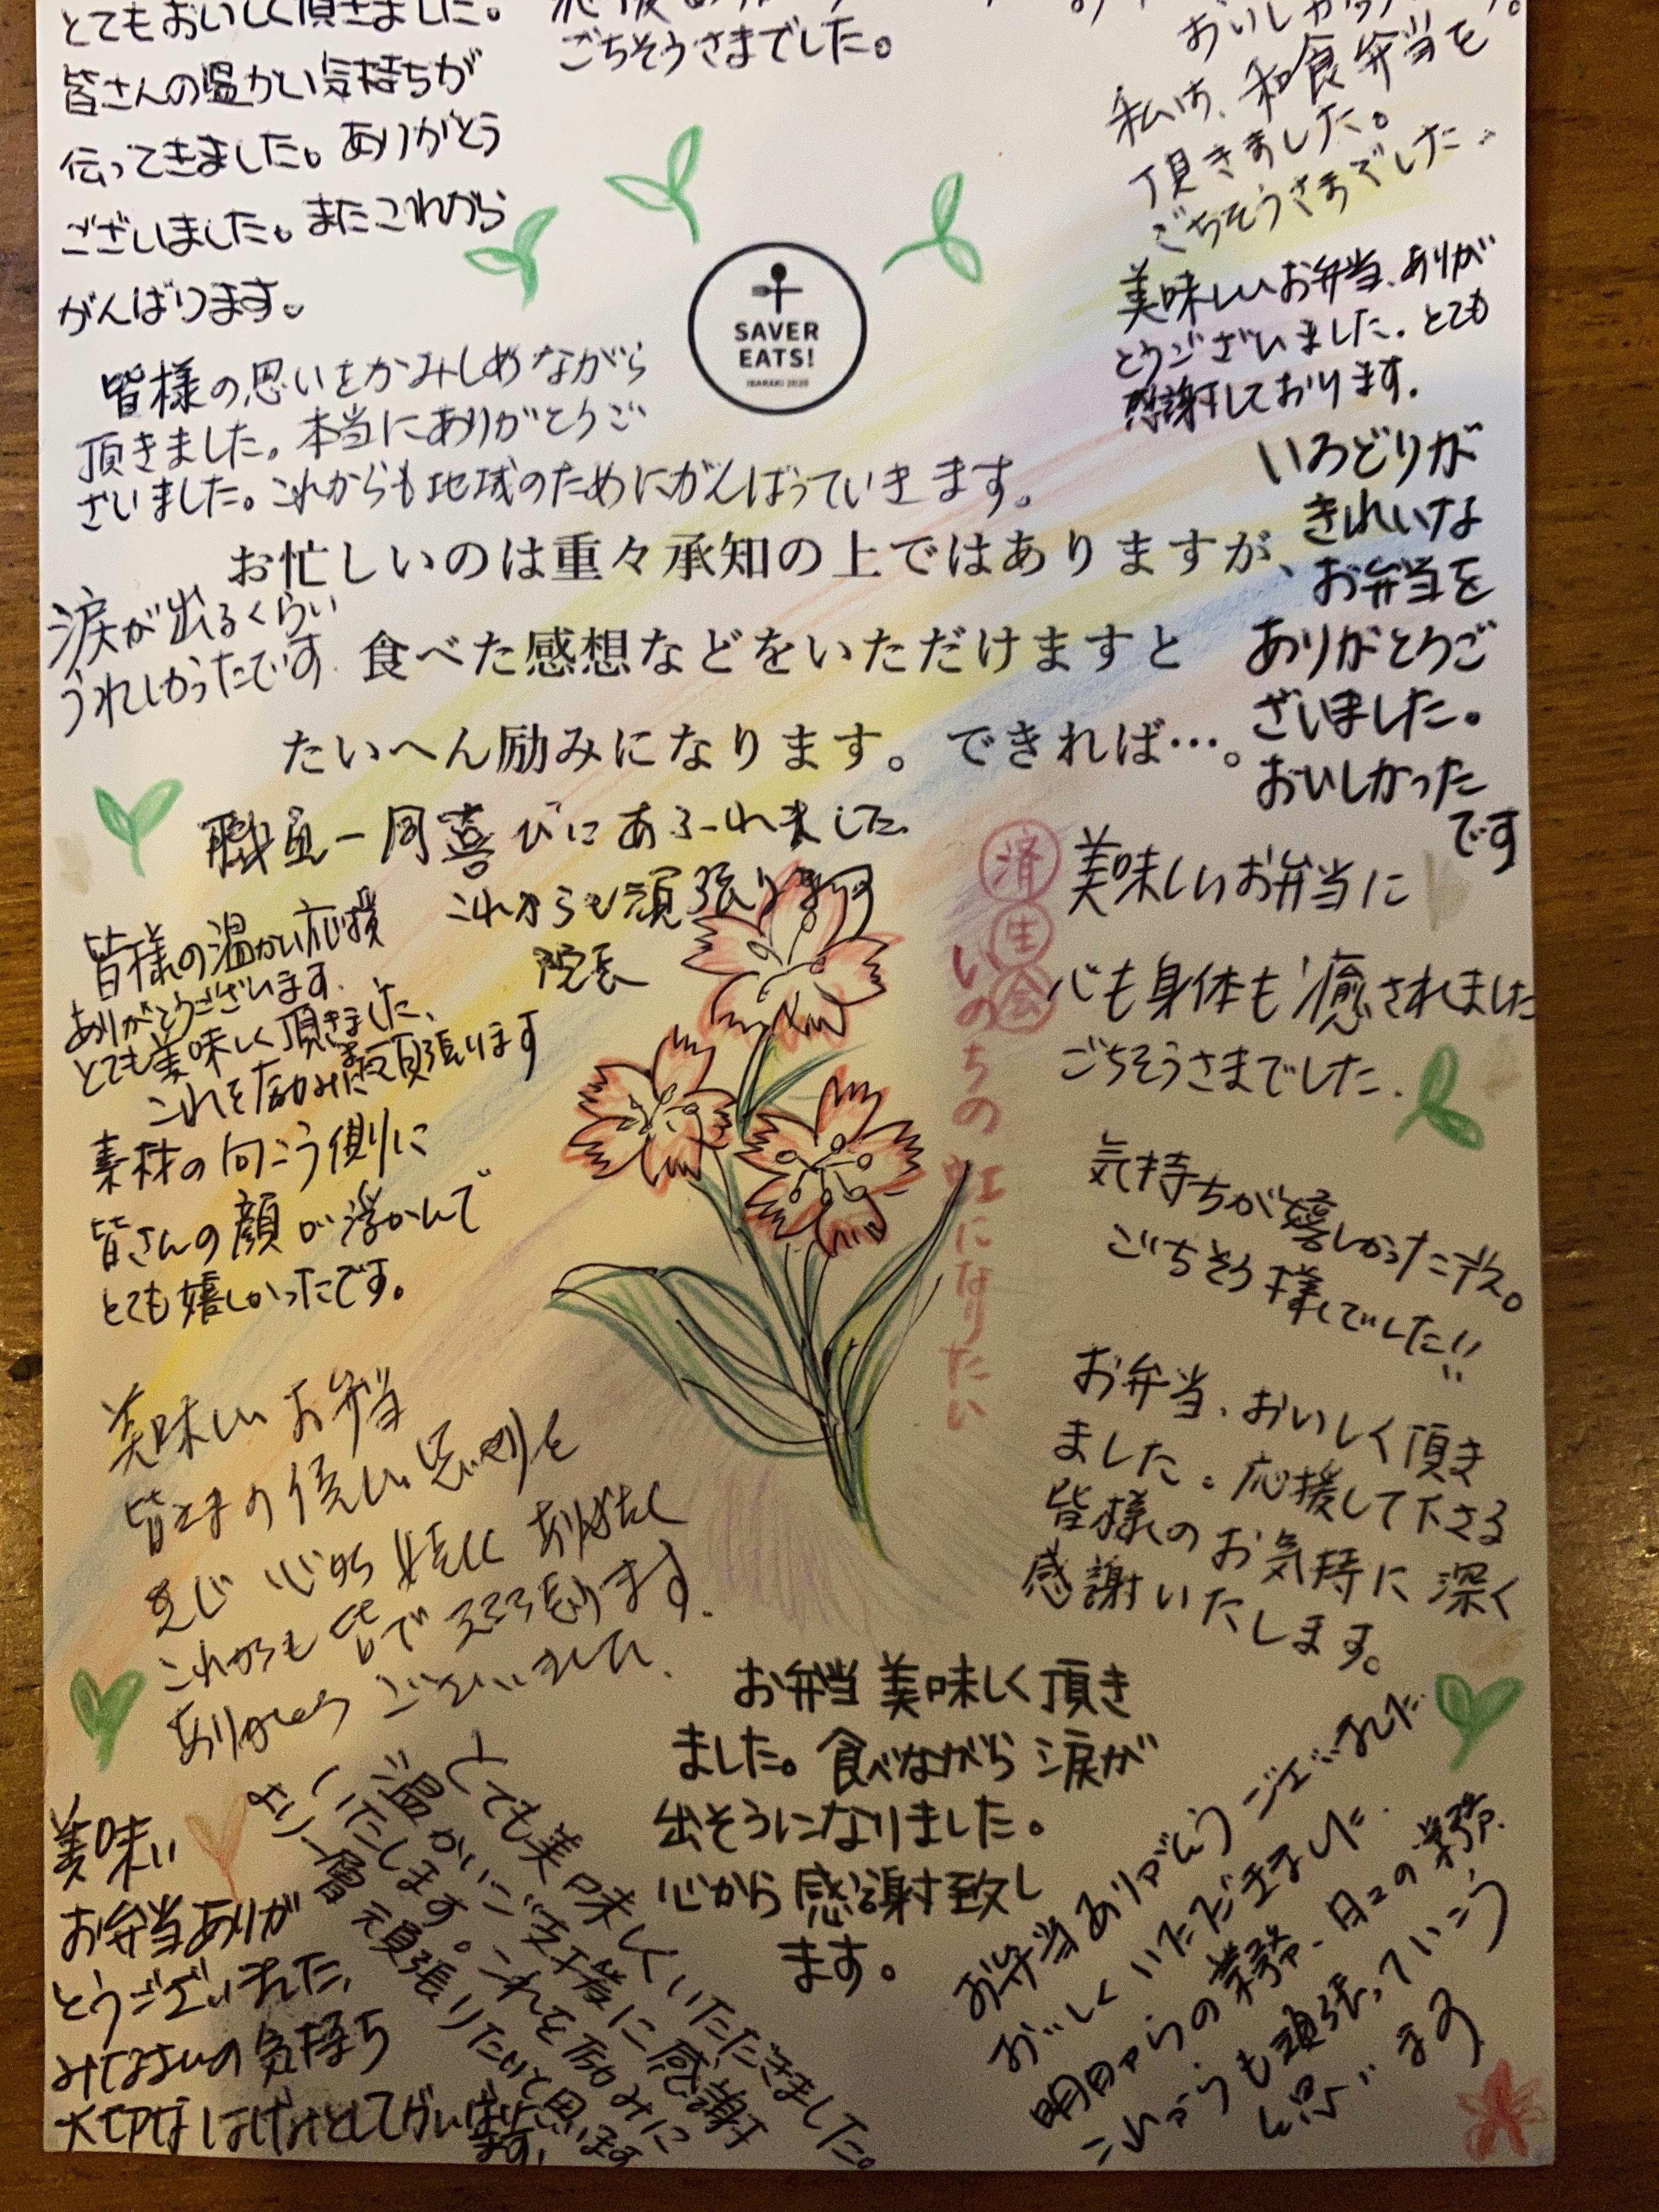 とてもおいしく頂きました。
皆さんの温かい気持ちが
伝ってきました。ありがとう
ございました。またこれから
がんばります。
ごちそうさまでした。
私は、和食弁当を
頂きました。
ごちそうさまでした
美味しいお弁当、ありが
とうございました。とても
感謝しております。
SAVER
EATS!
IBARAKI 2020
皆様の思いをかみしめながら
頂きました。本当にありがとうご
ざいました。これからも地域のためにがんばっていきます。
いろどりが
きれいな
お弁当を
ありがとうご
ざいました。
おいしかった
です
お忙しいのは重々承知の上ではありますが、
食べた感想などをいただけますと
たいへん励みになります。できれば…。
涙が出るくらい
うれしかったです
職員一同喜びにあふれました
これからも頑張ります
院長
済生会
いのちの虹になりたい
美味しいお弁当に
心も身体も癒されました
ごちそうさまでした。
皆様の温かい応援
ありがとうございます。
とても美味しく頂きました、
これを励みに頑張ります
素材の向こう側に
皆さんの顔が浮かんで
とても嬉しかったです。
気持ちが嬉しかったデス。
ごちそう様でした!!
お弁当、おいしく頂き
ました。応援して下さる
皆様のお気持に深く
感謝いたします。
美味しいお弁当
皆さまの優しい思いやりを
これからも皆で頑張ります
ありがとうございました。
お弁当美味しく頂き
ました。食べながら涙が
出そうになりました。
心から感謝致し
ます。
美味い
お弁当ありが
とうございました、
みなさんの気持ち
とても美味しくいただきました。
温かいご支援に感謝
いたします。これを励みに
より一層頑張りたいと思います
お弁当ありがとうございました
おいしくいただきました
明日からの業務、日々の業務、
これからも頑張っていこう
と思います